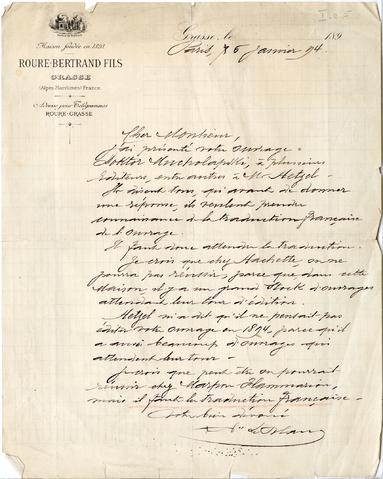 I
Grasse, le 189
Paris, 6 Janvier 94.
Maison fondée en 1820
ROURE-BERTRAND FILS
GRASSE
(Alpes-Maritimes) France
Adresse pour Télégrammes
ROURE-GRASSE
Cher Monsieur,
J'ai présenté votre ouvrage
Doktor à plusieurs
éditeurs, entre autres à Mr Hetzel
Ils disent tous, qu'avant de donner
une réponse, ils veulent prendre
connaissance de la traduction française
de l'ouvrage.
Il faut donc attendre la traduction.
Je crois que chez Hachette on ne
pourra pas réussir, parce que dans cette
Maison il y a un grand Stock d'ouvrages
attendant leur tour d'édition.
Hetzel m'a dit qu'il ne pensait pas
éditer votre ouvrage en 1894, parce qu'il
a aussi beaucoup d'ouvrages qui
attendent leur tour -
Je crois que peut être on pourrait
réussir chez Marpon Flammarion,
mais il faut la traduction française -
Votre bien dévoué